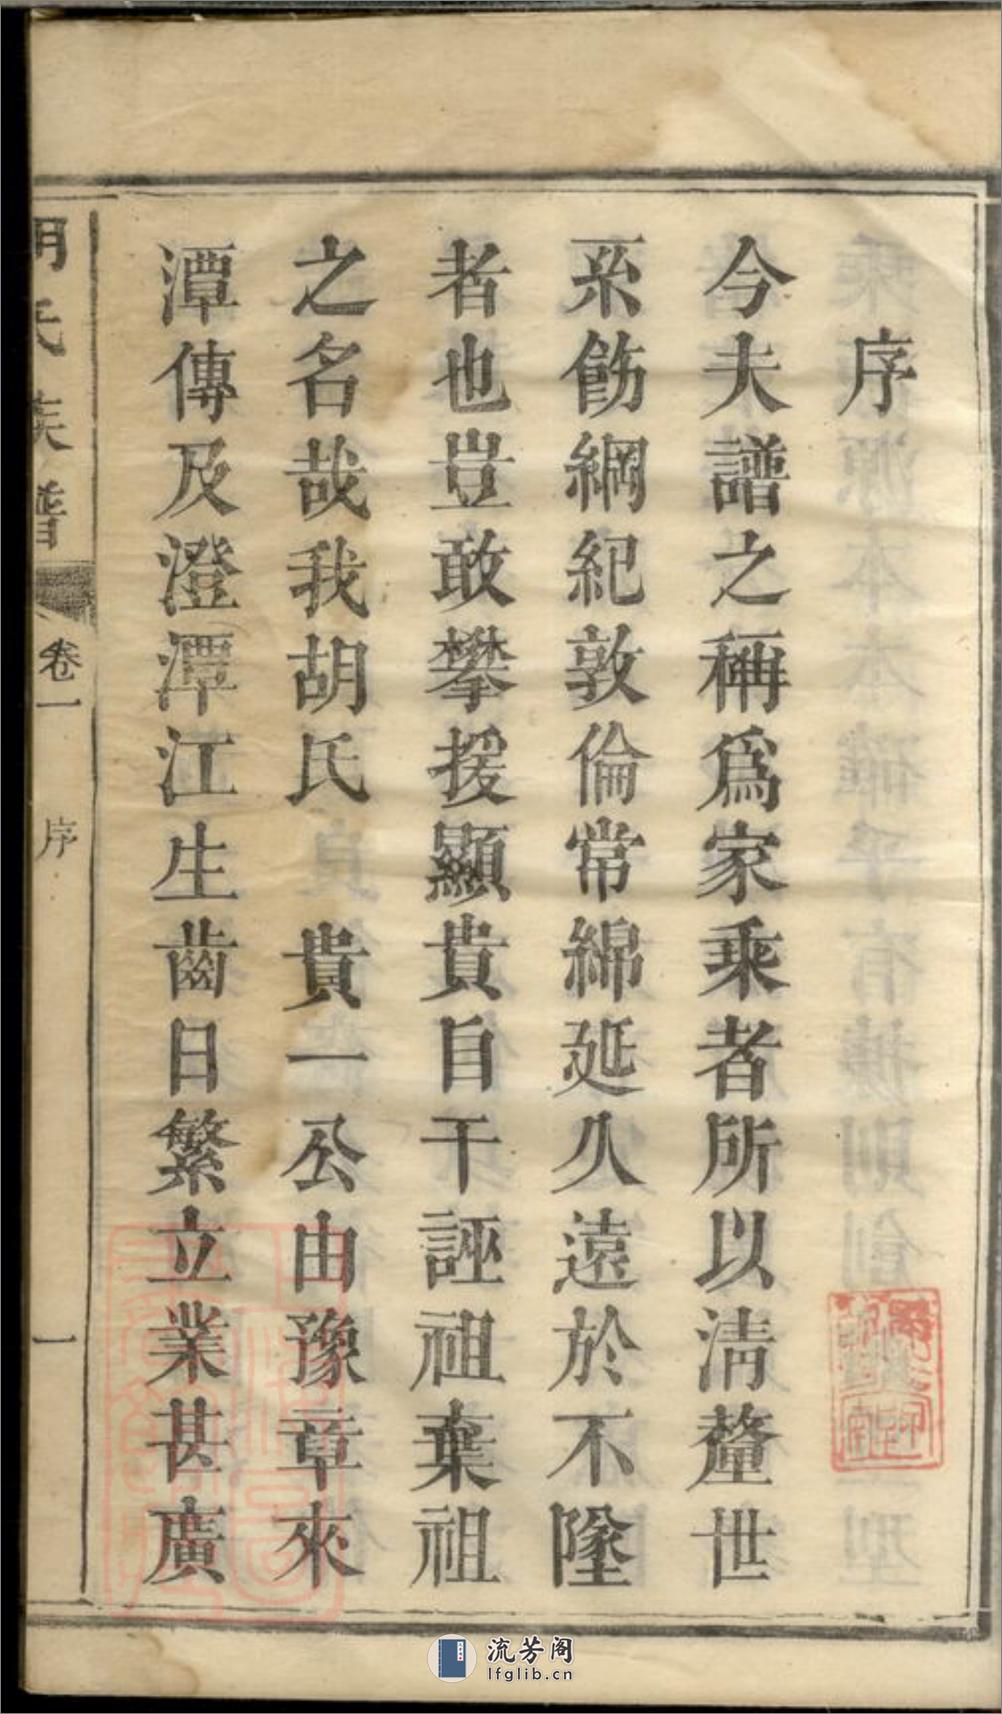 序
今夫譜之稱爲家乘者所以清釐世
系飭綱紀敦倫常綿延久遠於不墜
者也豈敢攀援顯貴自干誣祖棄祖
之名哉我胡氏 貴一公由豫章來
潭傳及澄潭江生齒日繁立業甚廣
胡氏族譜
卷一
序
一
流芳阁
lfglib.cn